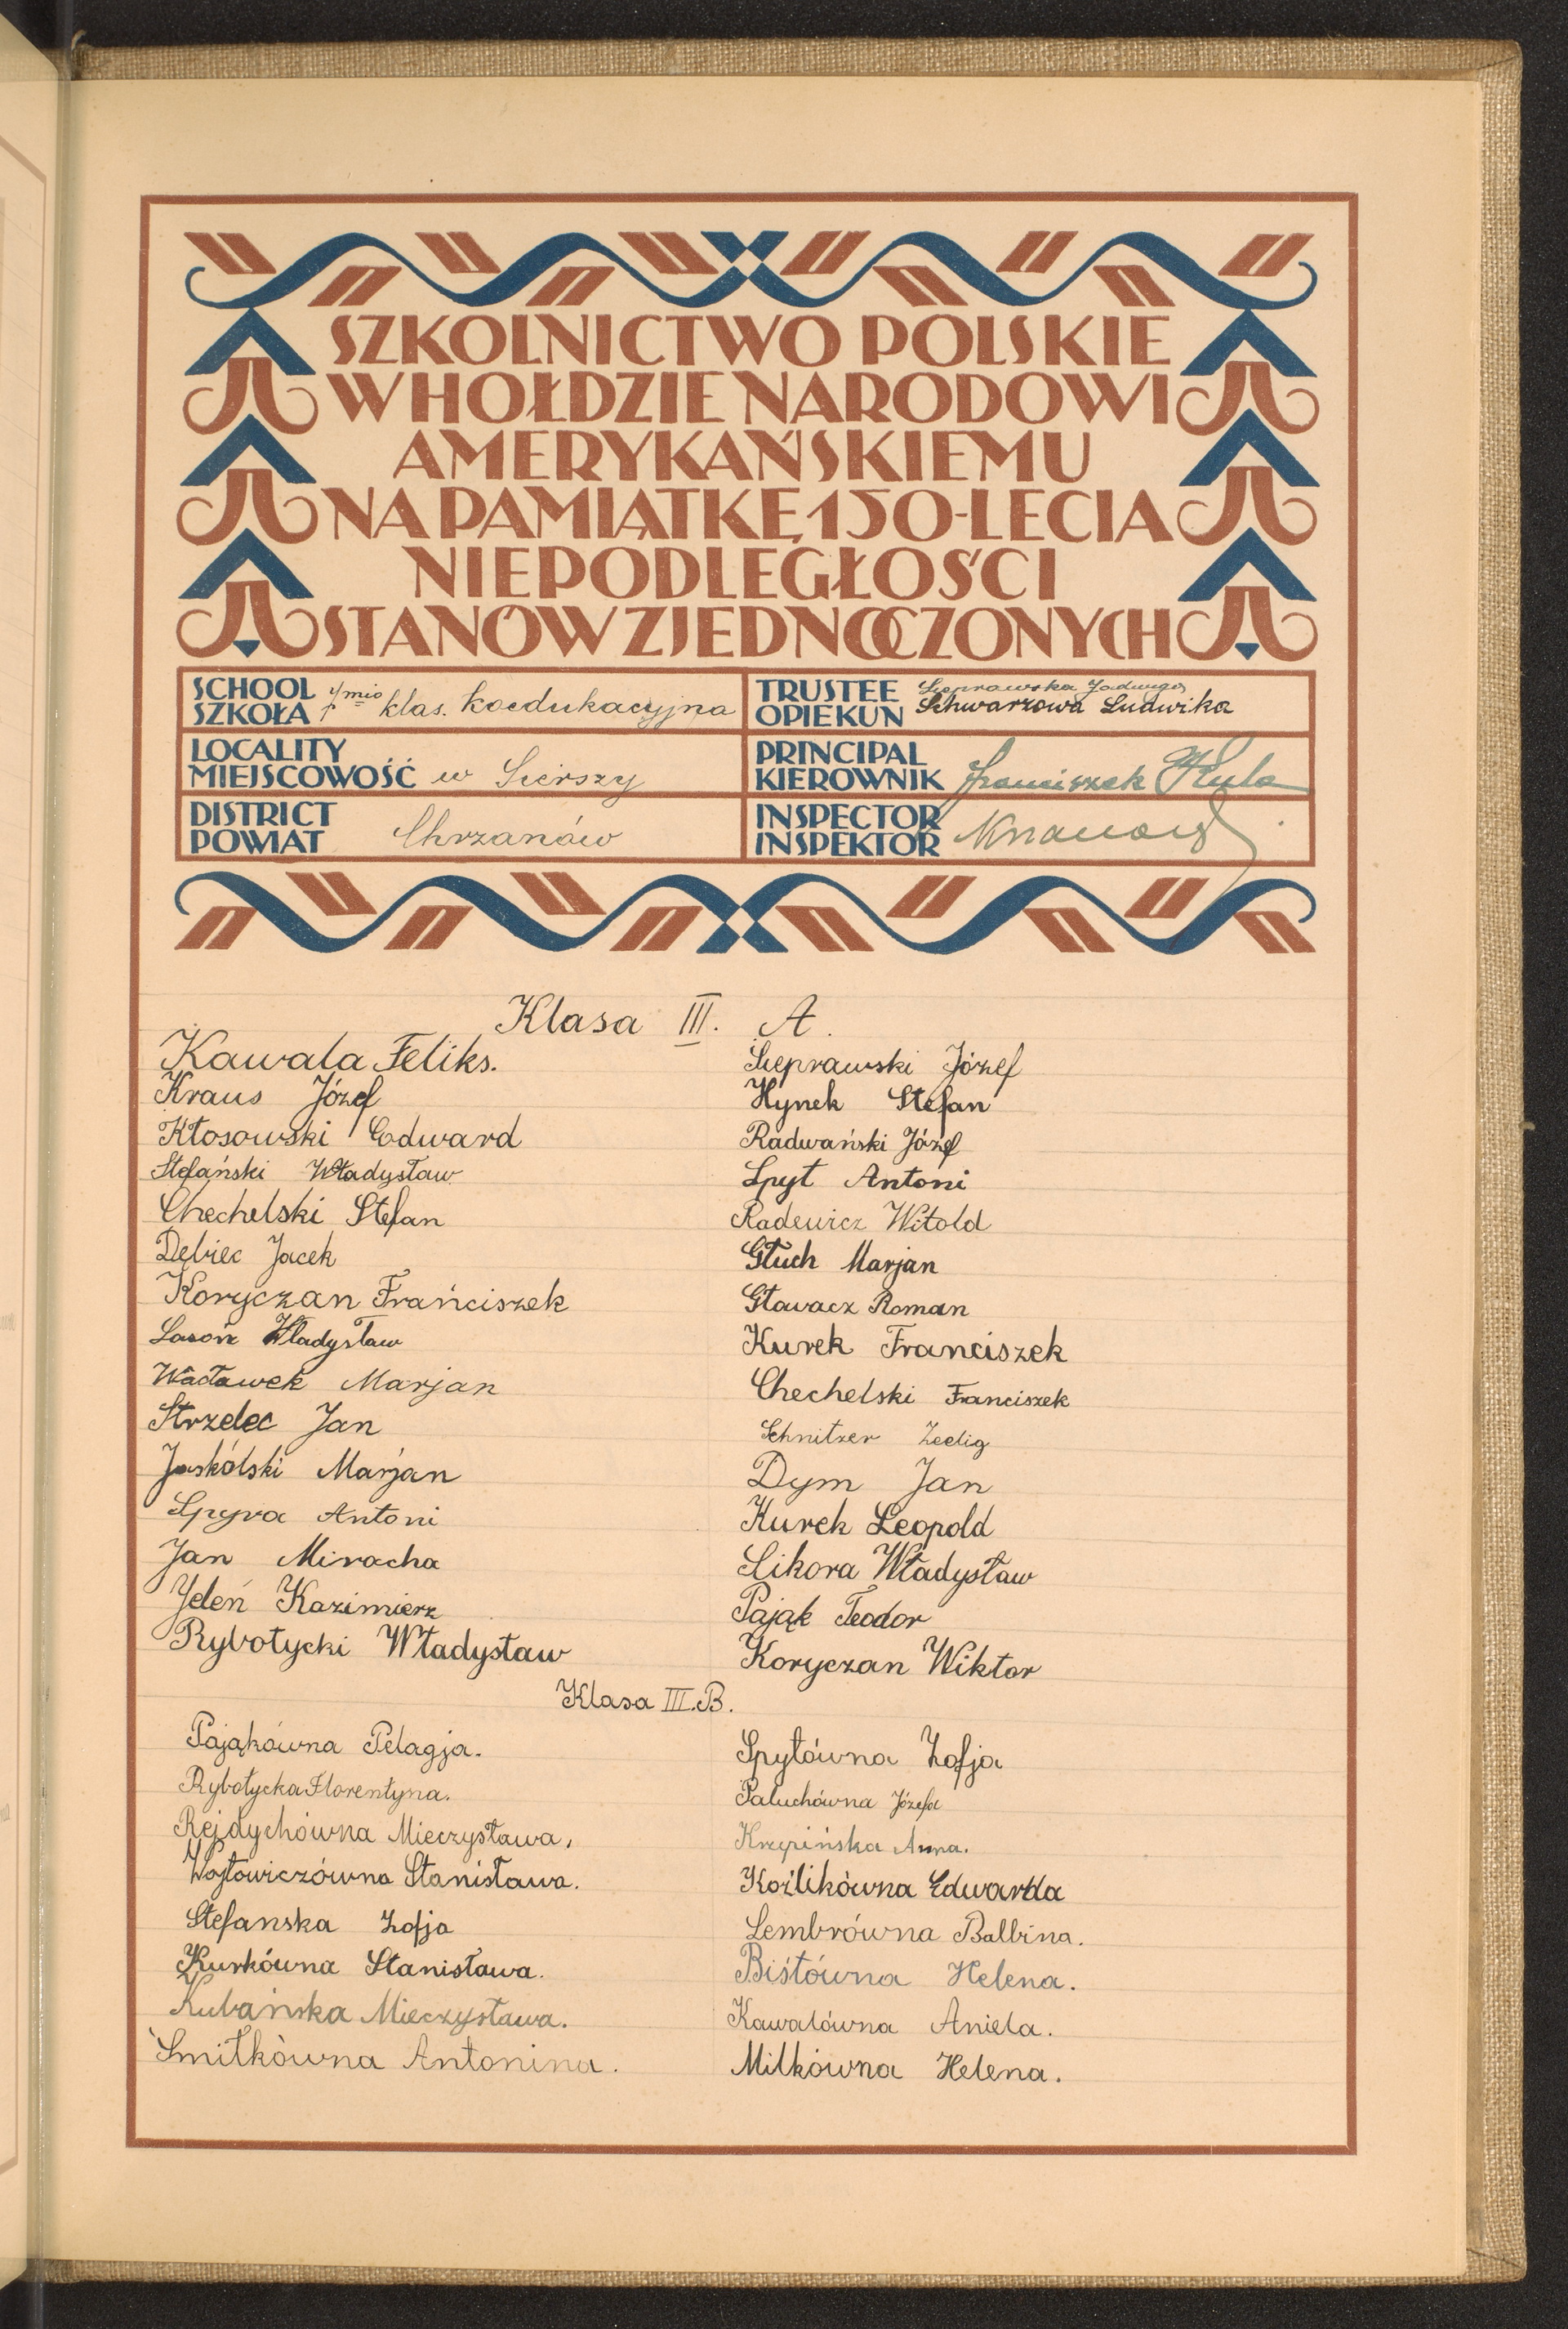 SZKOLNICTWO POLSKIE
W HOŁDZIE NARODOWI
AMERYKAŃSKIEMU
NA PAMIĄTKĘ 150-LECIA
NIEPODLEGŁOŚCI
STANÓW ZJEDNOCZONYCH
SCHOOL
SZKOŁA 7mio klas. koedukacyjna
TRUSTEE Sieprawska Jadwiga
OPIEKUN Schwarzowa Ludwika
LOCALITY
MIEJSCOWOŚĆ w Sierszy
PRINCIPAL
KIEROWNIK Franciszek Kula
DISTRICT
POWIAT Chrzanów
INSPECTOR
INSPEKTOR
Klasa III. A.
Kawala Feliks.
Kraus Józef
Kłosowski Edward
Stefański Władysław
Chechelski Stefan
Dębiec Jacek
Koryczan Frańciszek
Lasoń Władysław
Wacławek Marjan
Strzelec Jan
Jaskólski Marjan
Spyra Antoni
Jan Miracha
Jeleń Kazimierz
Rybotycki Władysław
Sieprawski Józef
Hynek Stefan
Radwański Józef
Spyt Antoni
Radewicz Witold
Głuch Marjan
Głavacz Roman
Kurek Franciszek
Chechelski Franciszek
Schnitzer Zeelig
Dym Jan
Kurek Leopold
Sikora Władysław
Pająk Teodor
Koryczan Wiktor
Klasa III. B.
Pająkówna Pelagja.
Rybotycka Florentyna.
Rejdychówna Mieczysława,
Wojtowiczówna Stanisława.
Stefanska Zofja
Kurkówna Stanisława.
Kubańska Mieczysława.
Smiłkówna Antonina.
Spytówna Zofja
Paluchówna Józefa
Krzypińska Anna.
Koźlikówna Edwarda
Lembrówna Balbina.
Biśtówna Helena.
Kawalówna Aniela.
Milkówna Helena.